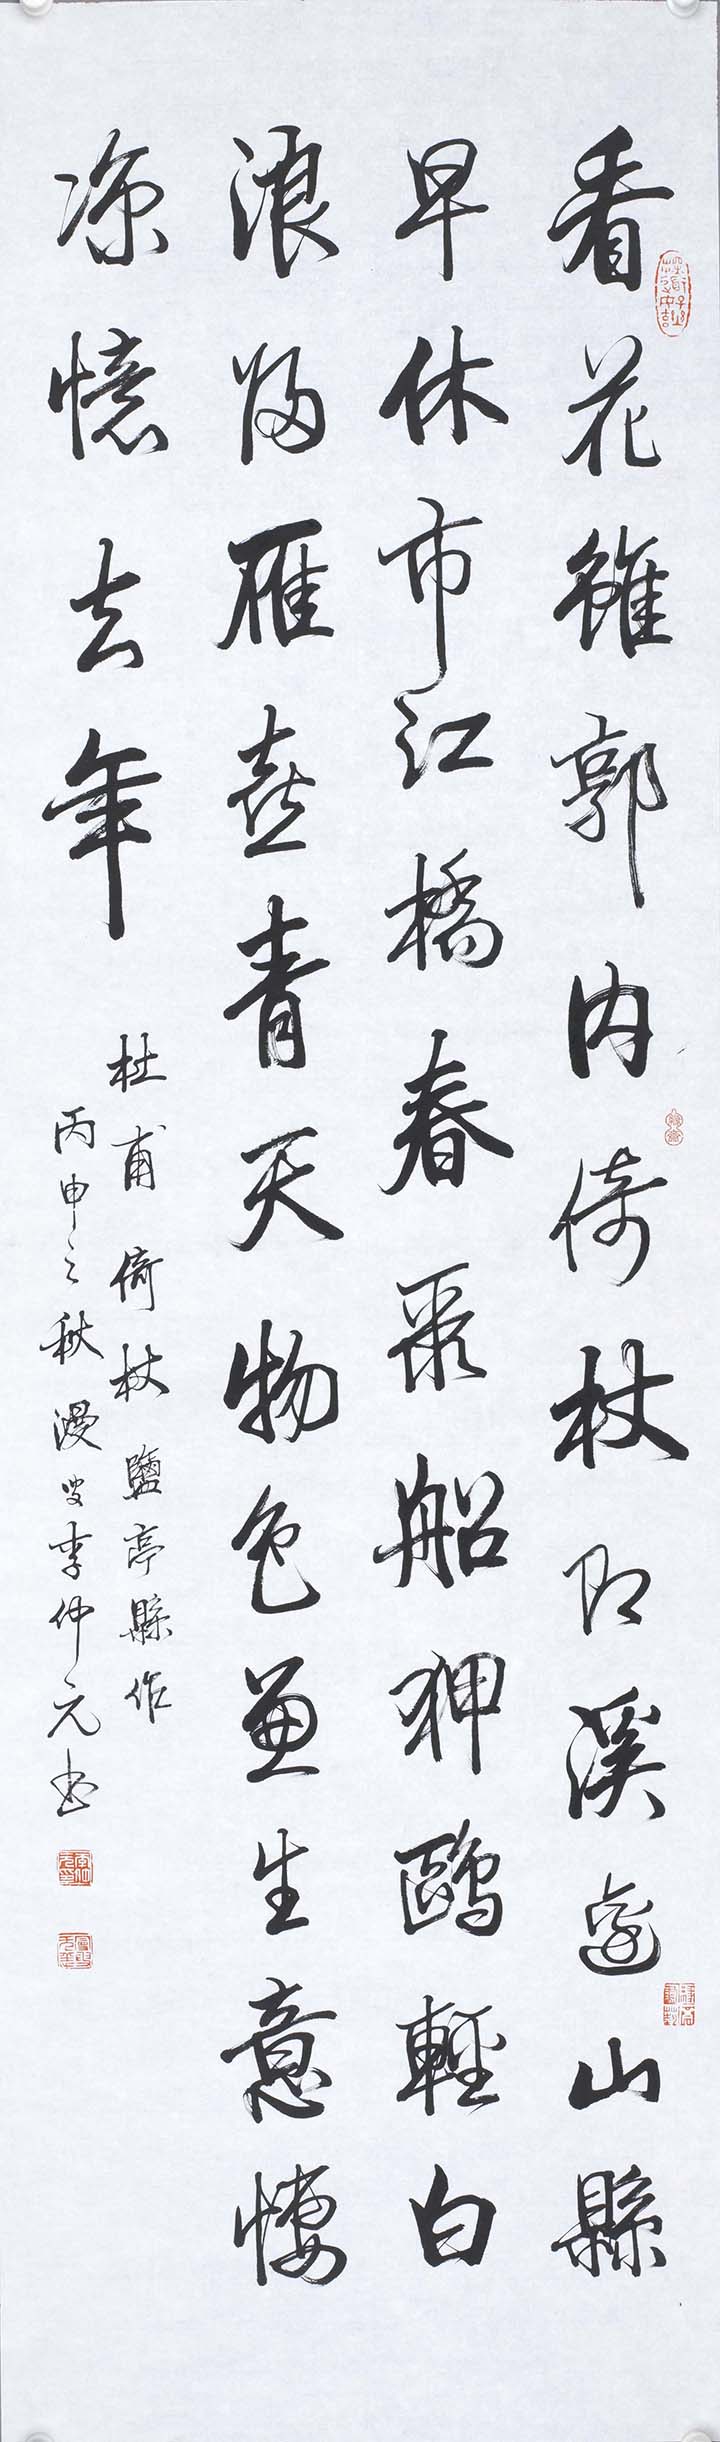 看花雖郭內倚杖即溪邊山縣
早休市江橋春聚船狎鷗輕白
浪歸雁喜青天物色兼生意悽
涼憶去年
杜甫倚杖鹽亭縣作
丙申之秋漫叟李仲元书